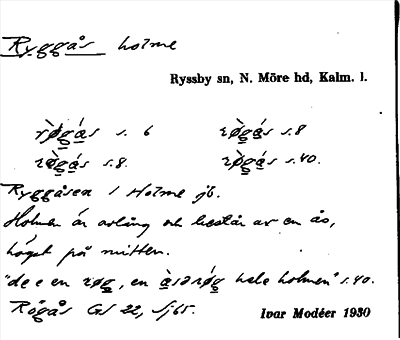 Ryggås holme
Ryssby sn, N. Möre hd, Kalm. l.
rø̀gás s. 6 rø̀gás s.8
rø̀gás s.8. rø̀gás s.40.
Ryggåsen i Holme jb.
Holmen är avlång och består av en ås,
högst på mitten.
"de e en røg, en hela holmen" s.40.
Rögås GS 22, Sj65.
Ivar Modéer 1930